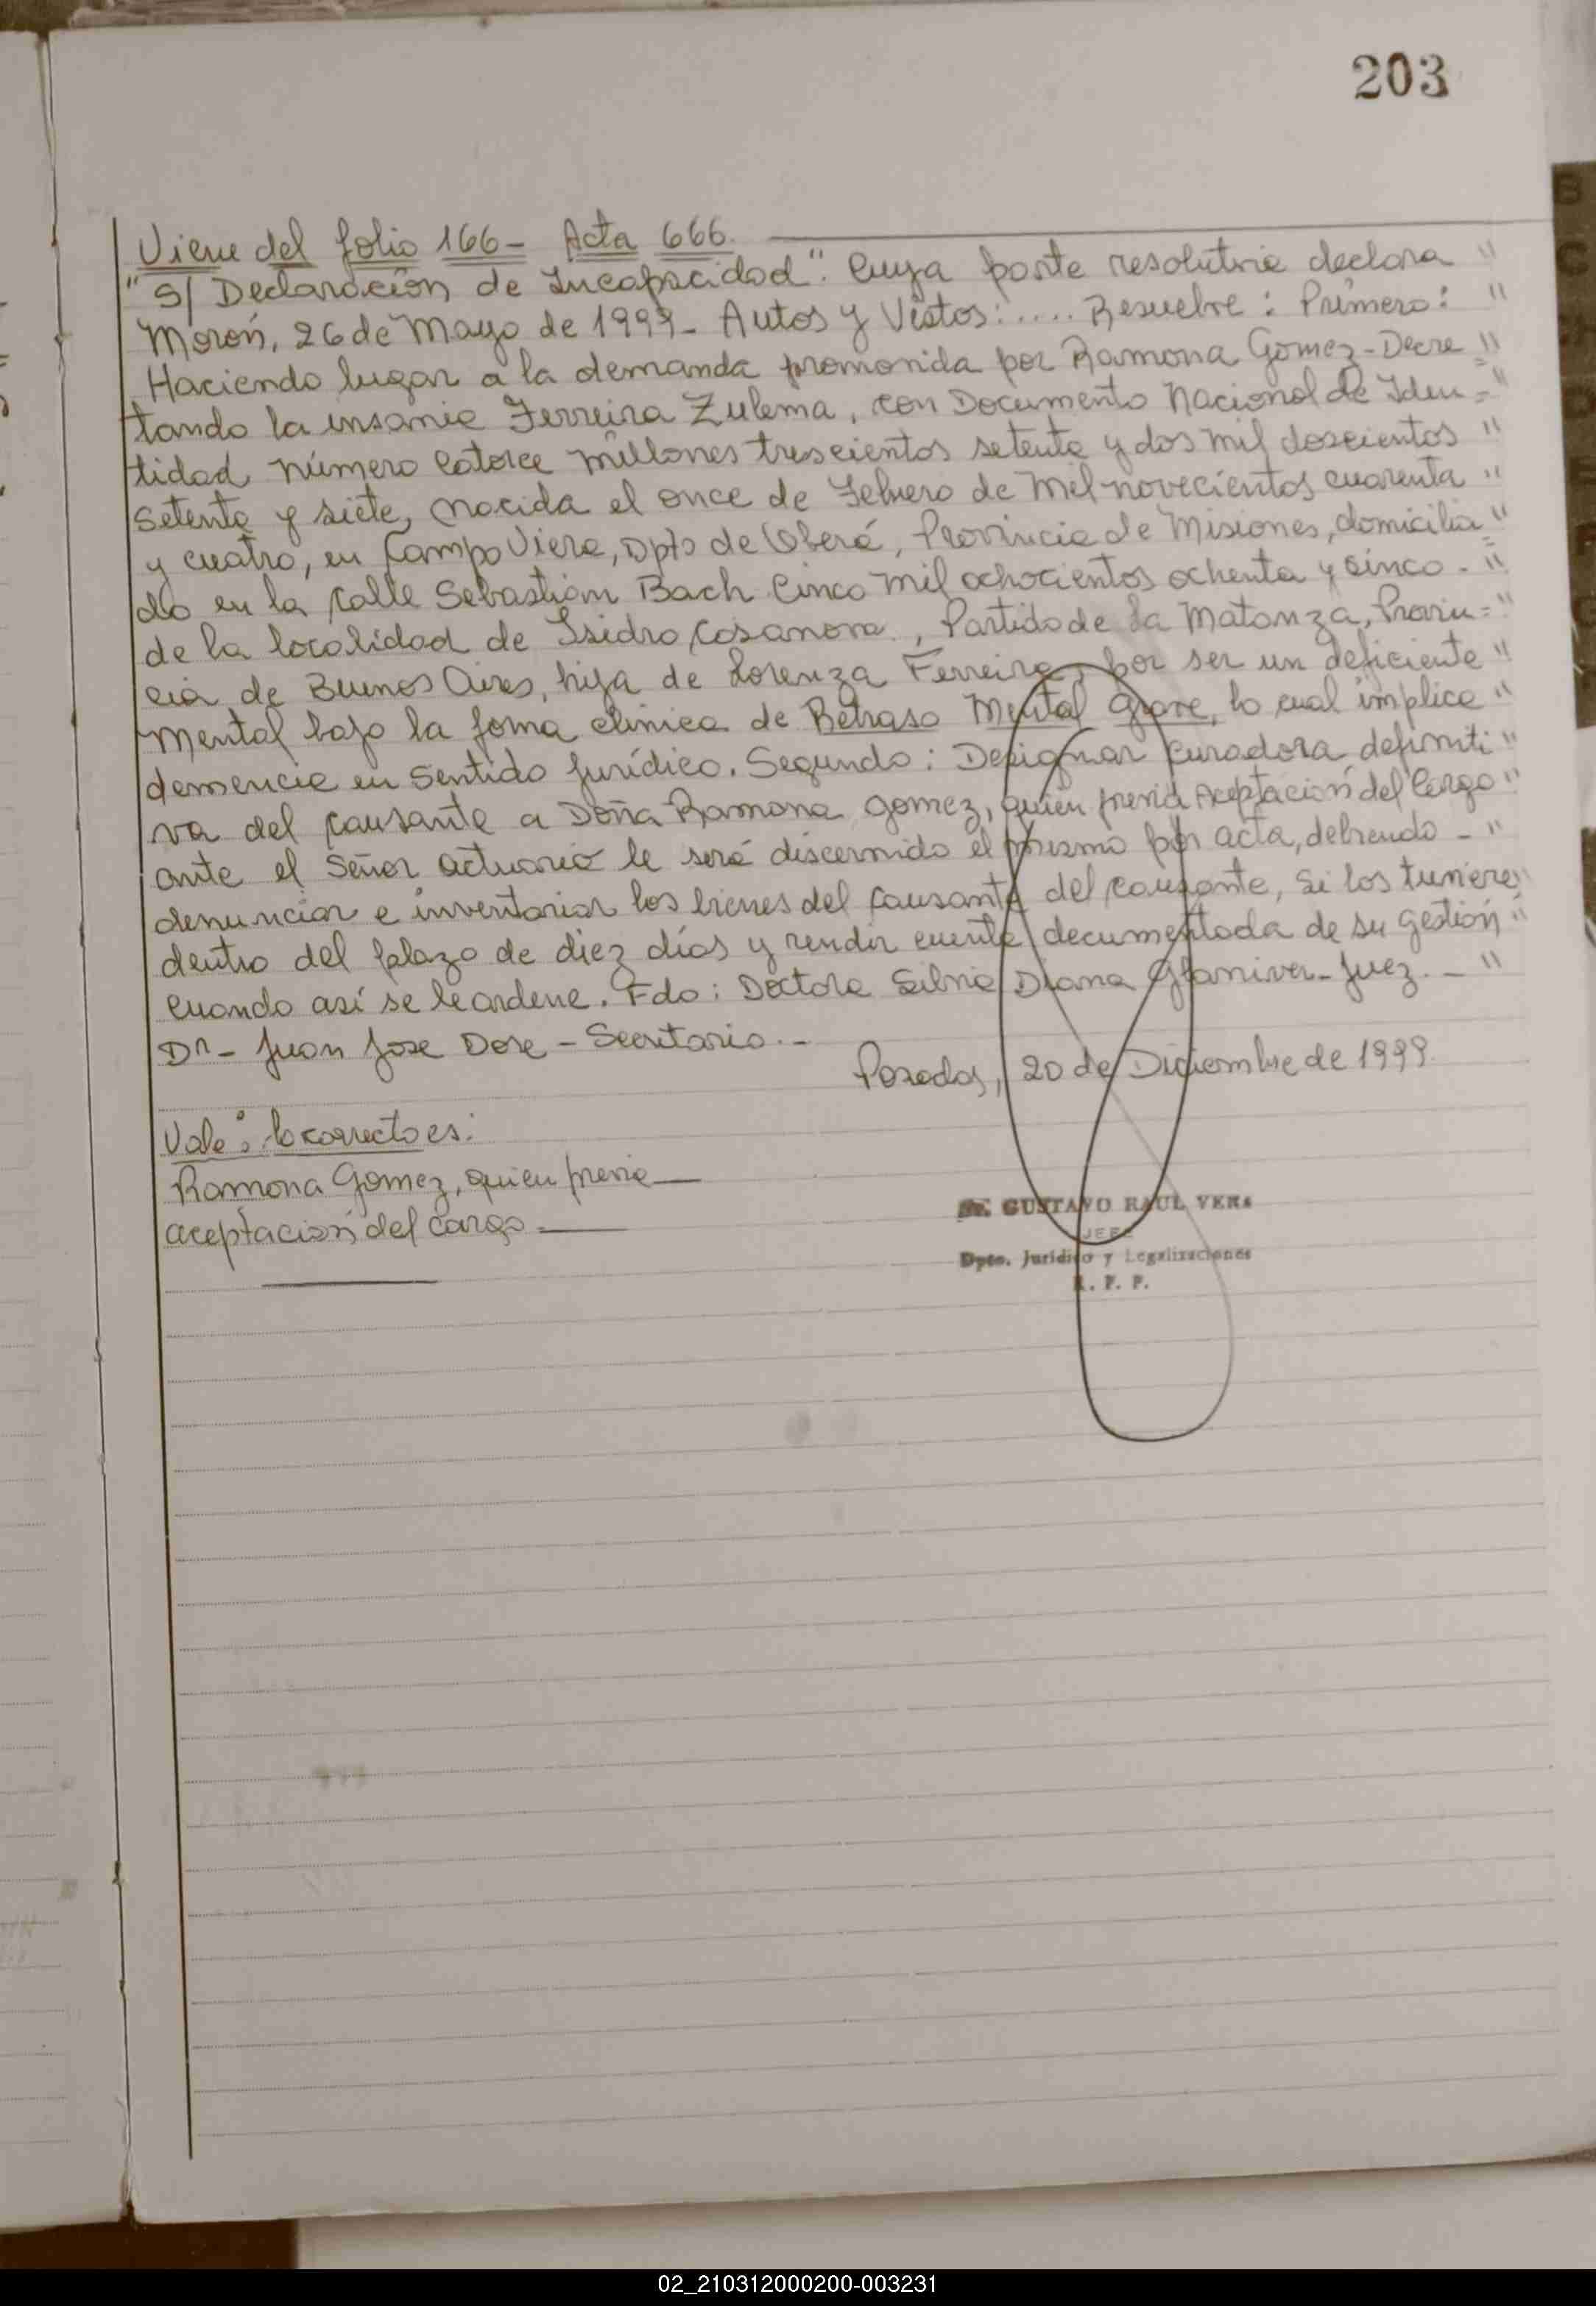 203
Viene del folio 166- Acta 666.
"S/ Declaración de Incapacidad". Cuya parte resolutiva declara "
Morón, 26 de Mayo de 1999- Autos y Vistos:..... Resuelve: Primero: "
Haciendo lugar a la demanda promovida por Ramona Gomez-Decre "
tando la insania Ferreira Zulema, con Documento Nacional de Iden="
tidad número catorce millones trescientos setenta y dos mil doscientos "
setenta y siete, nacida el once de Febrero de mil novecientos cuarenta "
y cuatro, en Campo Viera, Dpto de Oberá, Provincia de Misiones, domicilia"
do en la calle Sebastián Bach Cinco mil ochocientos ochenta y cinco. "
de la localidad de Isidro Casanova., Partido de la Matanza, Provin="
cia de Buenos Aires, hija de Lorenza Ferreira, por ser un deficiente "
Mental bajo la forma clínica de Retraso Mental Grave, lo cual implica "
demencia en sentido Jurídico. Segundo: Designar curadora definiti "
va del causante a Doña Ramona Gomez, quien previa Aceptación del Cargo "
ante el Señor Actuario le será discernido el mismo por acta, debiendo - "
denunciar e inventariar los bienes del causante del causante, si los tuviere "
dentro del palazo de diez días y rendir cuenta documentada de su gestión "
cuando así se le ordene. Fdo: Doctora Silvia Diana - Juez.- "
Dr- Juan Jose Dore - Secretario.-
Posadas, 20 de Diciembre de 1999.
Vale: lo correcto es:
Ramona Gomez, quien previa
aceptación del cargo.
Dr. GUSTAVO RAUL VERA
JEFE
Dpto. Jurídico y Legalizaciones
R. P. P.
02_210312000200-003231